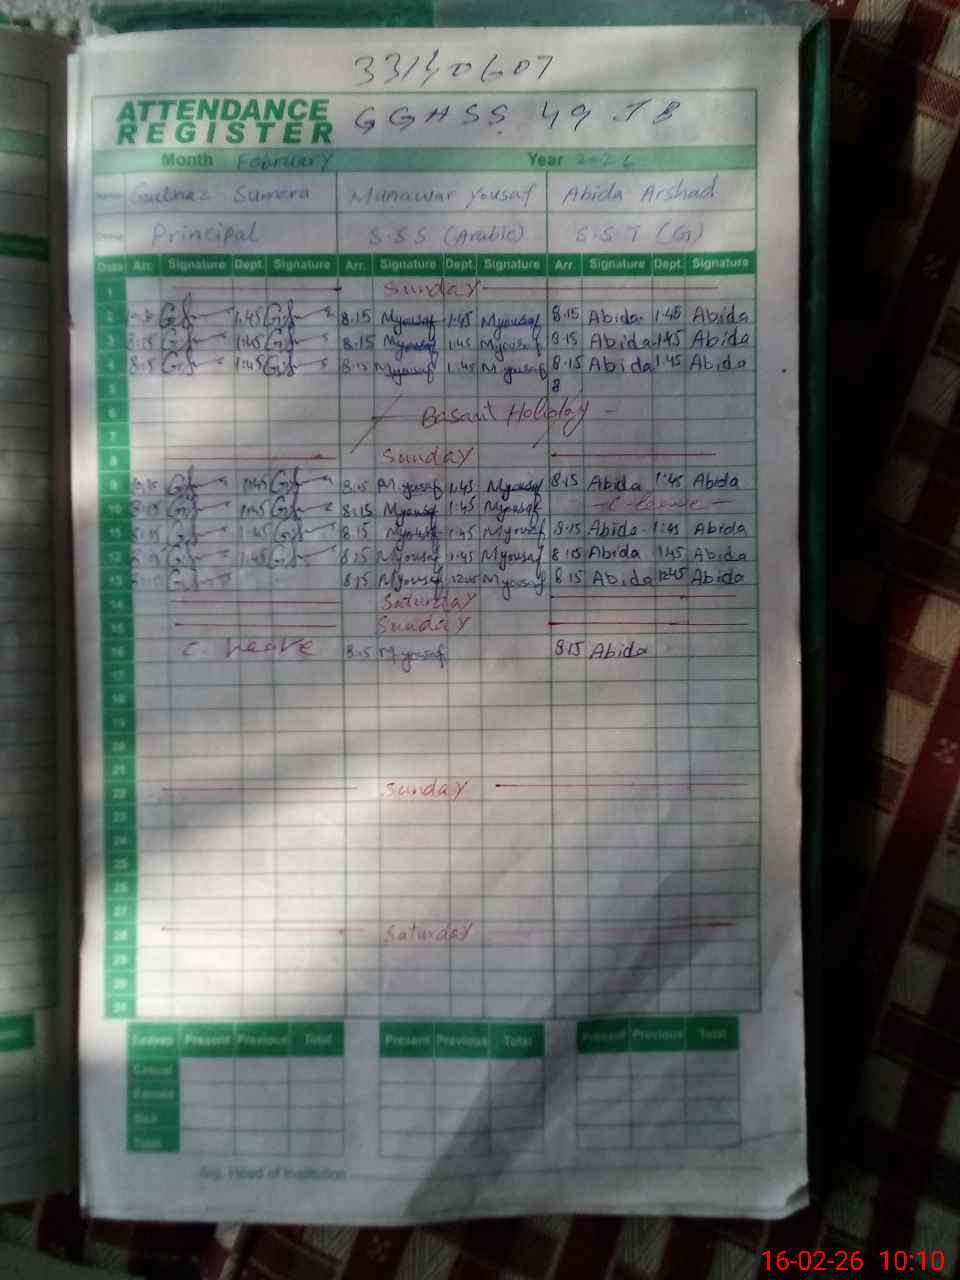 33140607
ATTENDANCE REGISTER GGHSS 49 JB
Month February Year 2026
Name Gulnaz Sumera Munawar Yousaf Abida Arshad
Principal S.S.S (Arabic) S.S.T (G)
Date Arr. Signature Dept. Signature Arr. Signature Dept. Signature Arr. Signature Dept. Signature
1 Sunday
2 1:45 8.15 Myousaf 1:45 Myousaf 8.15 Abida 1.45 Abida
3 8:15 1:45 8.15 Myousaf 1:45 Myousaf 8.15 Abida 1.45 Abida
4 8:15 1:45 8.15 Myousaf 1:45 Myousaf 8.15 Abida 1.45 Abida
5 8
6 Basant Holiday
7
8 Sunday
9 1:45 8.15 Myousaf 1.45 Myousaf 8.15 Abida 1:45 Abida
10 8:15 1:45 8.15 Myousaf 1:45 Myousaf C leave
11 8:15 1:45 8.15 Myousaf 1:45 Myousaf 8.15 Abida 1:45 Abida
12 1:45 8.15 Myousaf 1:45 Myousaf 8.15 Abida 1.45 Abida
13 8.15 Myousaf 12:45 Myousaf 8.15 Abida 12:45 Abida
14 Saturday
15 Sunday
16 C. Leave 8.15 Myousaf 8.15 Abida
17
18
19
20
21
22 Sunday
23
24
25
26
27
28 Saturday
29
30
31
Leaves Present Previous Total Present Previous Total Present Previous Total
Casual
Earned
Sick
Total
Sig. Head of Institution
16-02-26 10:10